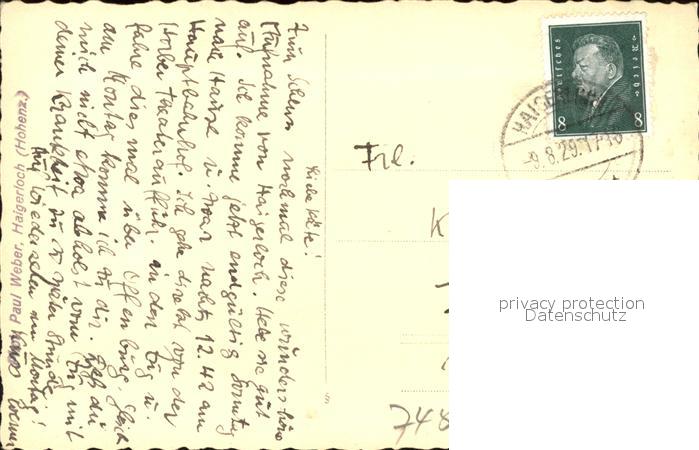 Liebe Käte!
Zum Schluss nochmal diese wunderschöne
Aufnahme von Haigerloch. Hebe sie gut
auf. Ich komme jetzt endgültig Sonntag
nach Hause u. zwar nachts 12.42 am
Hauptbahnhof. Ich gehe direkt von der
Theateraufführ. in den Zug u.
fahre diesmal über Offenburg. Gleich
am Montag komme ich zu dir. du
mich nicht etwa abholst vom Zug mit
deiner Krankheit zu so später Stunde!
Auf Wiedersehen am Montag!
Paul Weber, Haigerloch (Hohenz)
Frl.
K
748
Deutsches Reich
8 8
HAIGERLOCH
-8.8.29.17-18
privacy protection
Datenschutz